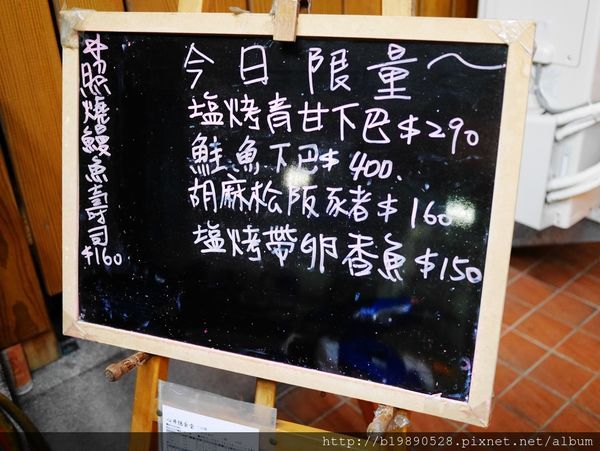 今日限量～
塩烤青甘下巴$290
鮭魚下巴$400.
胡麻松阪豕者$160
塩烤帶卵香魚$150
照燒鰻魚壽司
$160
http://b19890528.pixnet.net/album